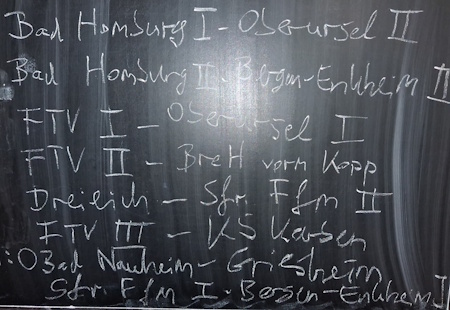 Bad Homburg I - Oberursel II
Bad Homburg II - Bergen-Enkheim II
FTV I - Oberursel I
FTV II - Brett vorm Kopp
Dreieich - Sfr Ffm II
FTV III - KS Karben
Bad Nauheim - Griesheim
Sfr Ffm I - Bergen-Enkheim I